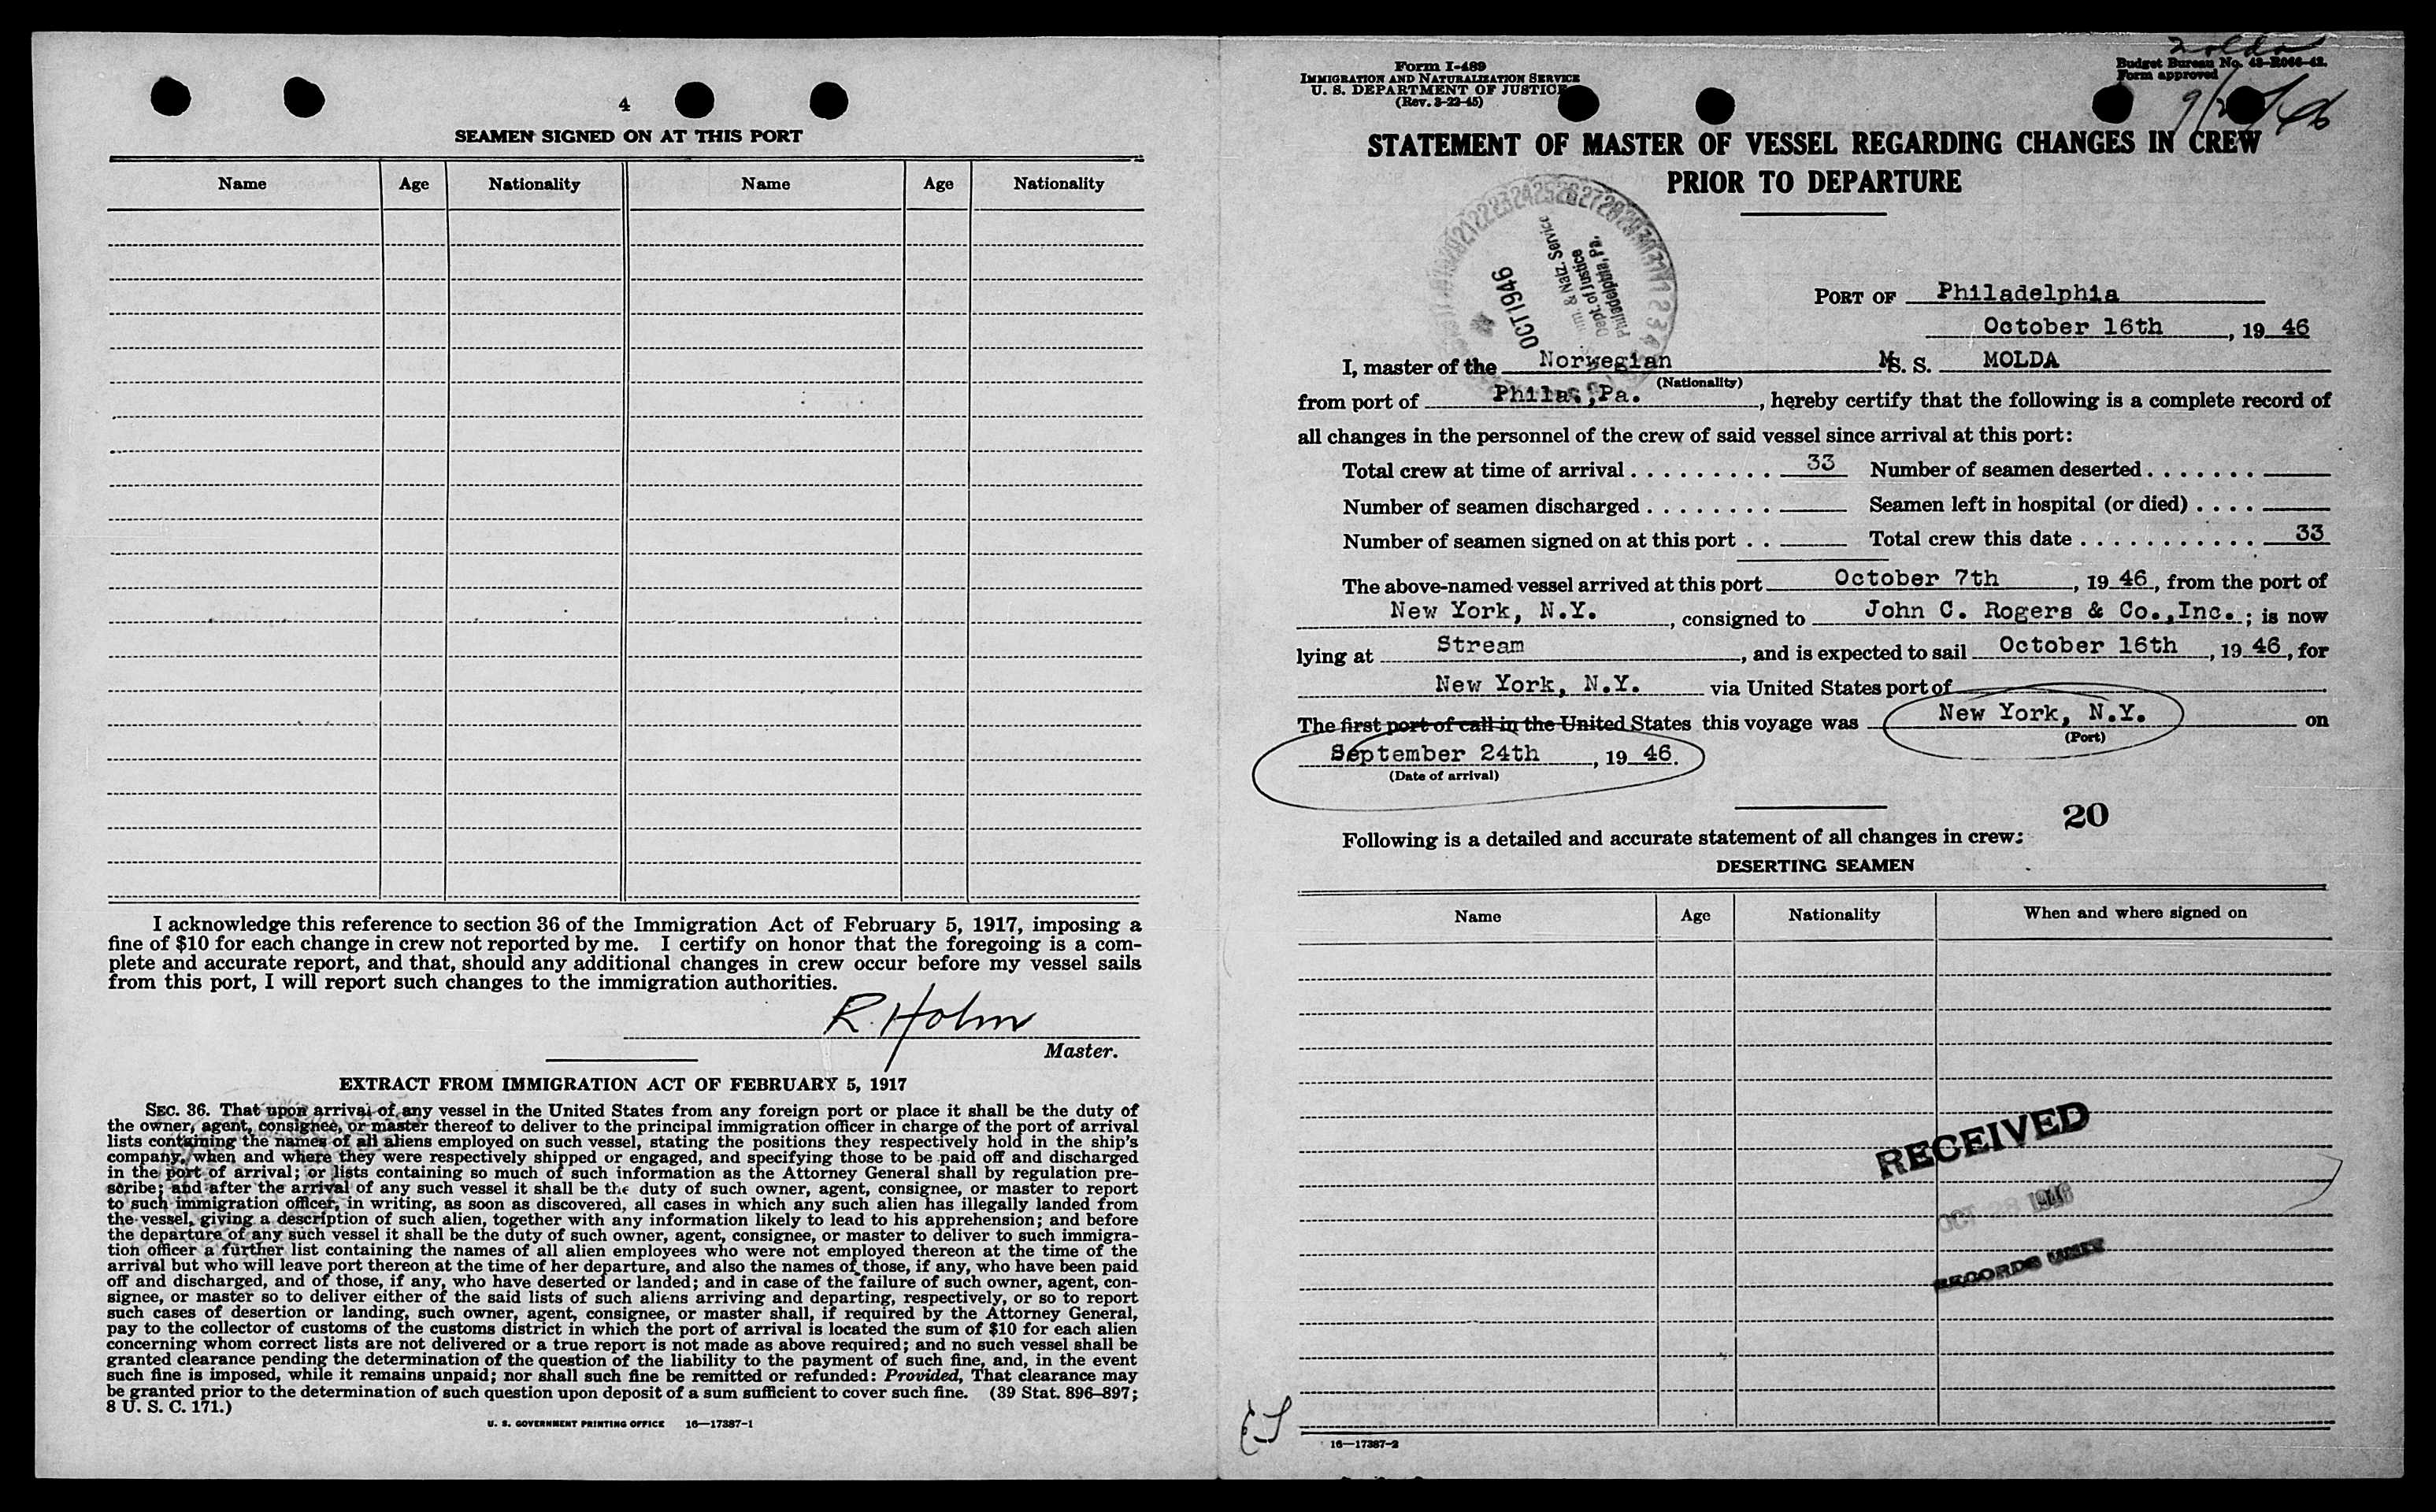 4
SEAMEN SIGNED ON AT THIS PORT
Name Age Nationality Name Age Nationality
I acknowledge this reference to section 36 of the Immigration Act of February 5, 1917, imposing a
fine of $10 for each change in crew not reported by me. I certify on honor that the foregoing is a com-
plete and accurate report, and that, should any additional changes in crew occur before my vessel sails
from this port, I will report such changes to the immigration authorities.
R. Holm
Master.
EXTRACT FROM IMMIGRATION ACT OF FEBRUARY 5, 1917
SEC. 36. That upon arrival of any vessel in the United States from any foreign port or place it shall be the duty of
the owner, agent, consignee, or master thereof to deliver to the principal immigration officer in charge of the port of arrival
lists containing the names of all aliens employed on such vessel, stating the positions they respectively hold in the ship's
company, when and where they were respectively shipped or engaged, and specifying those to be paid off and discharged
in the port of arrival; or lists containing so much of such information as the Attorney General shall by regulation pre-
scribe; and after the arrival of any such vessel it shall be the duty of such owner, agent, consignee, or master to report
to such immigration officer, in writing, as soon as discovered, all cases in which any such alien has illegally landed from
the vessel, giving a description of such alien, together with any information likely to lead to his apprehension; and before
the departure of any such vessel it shall be the duty of such owner, agent, consignee, or master to deliver to such immigra-
tion officer a further list containing the names of all alien employees who were not employed thereon at the time of the
arrival but who will leave port thereon at the time of her departure, and also the names of those, if any, who have been paid
off and discharged, and of those, if any, who have deserted or landed; and in case of the failure of such owner, agent, con-
signee, or master so to deliver either of the said lists of such aliens arriving and departing, respectively, or so to report
such cases of desertion or landing, such owner, agent, consignee, or master shall, if required by the Attorney General,
pay to the collector of customs of the customs district in which the port of arrival is located the sum of $10 for each alien
concerning whom correct lists are not delivered or a true report is not made as above required; and no such vessel shall be
granted clearance pending the determination of the question of the liability to the payment of such fine, and, in the event
such fine is imposed, while it remains unpaid; nor shall such fine be remitted or refunded: Provided, That clearance may
be granted prior to the determination of such question upon deposit of a sum sufficient to cover such fine. (39 Stat. 896–897;
8 U. S. C. 171.)
U. S. GOVERNMENT PRINTING OFFICE 16—17387-1
Form I-489
IMMIGRATION AND NATURALIZATION SERVICE
U. S. DEPARTMENT OF JUSTICE
(Rev. 3-22-45)
Molda
Budget Bureau No. 43-R066-42.
Form approved
STATEMENT OF MASTER OF VESSEL REGARDING CHANGES IN CREW
PRIOR TO DEPARTURE
OCT 1946
Imm. & Natz. Service
Dept. of Justice
Philadelphia, Pa.
PORT OF Philadelphia
October 16th, 19 46
I, master of the Norwegian M S. S. MOLDA
(Nationality)
from port of Phila., Pa., hereby certify that the following is a complete record of
all changes in the personnel of the crew of said vessel since arrival at this port:
Total crew at time of arrival . . . . . . . . . 33 Number of seamen deserted . . . . . . .
Number of seamen discharged . . . . . . . . Seamen left in hospital (or died) . . . .
Number of seamen signed on at this port . . Total crew this date . . . . . . . . . . . 33
The above-named vessel arrived at this port October 7th, 19 46, from the port of
New York, N.Y., consigned to John C. Rogers & Co., Inc.; is now
lying at Stream, and is expected to sail October 16th, 19 46, for
New York, N.Y. via United States port of
The first port of call in the United States this voyage was New York, N.Y. on
(Port)
September 24th, 19 46.
(Date of arrival)
20
Following is a detailed and accurate statement of all changes in crew:
DESERTING SEAMEN
Name Age Nationality When and where signed on
RECEIVED
OCT 28 1946
RECORDS UNIT
16—17387-2